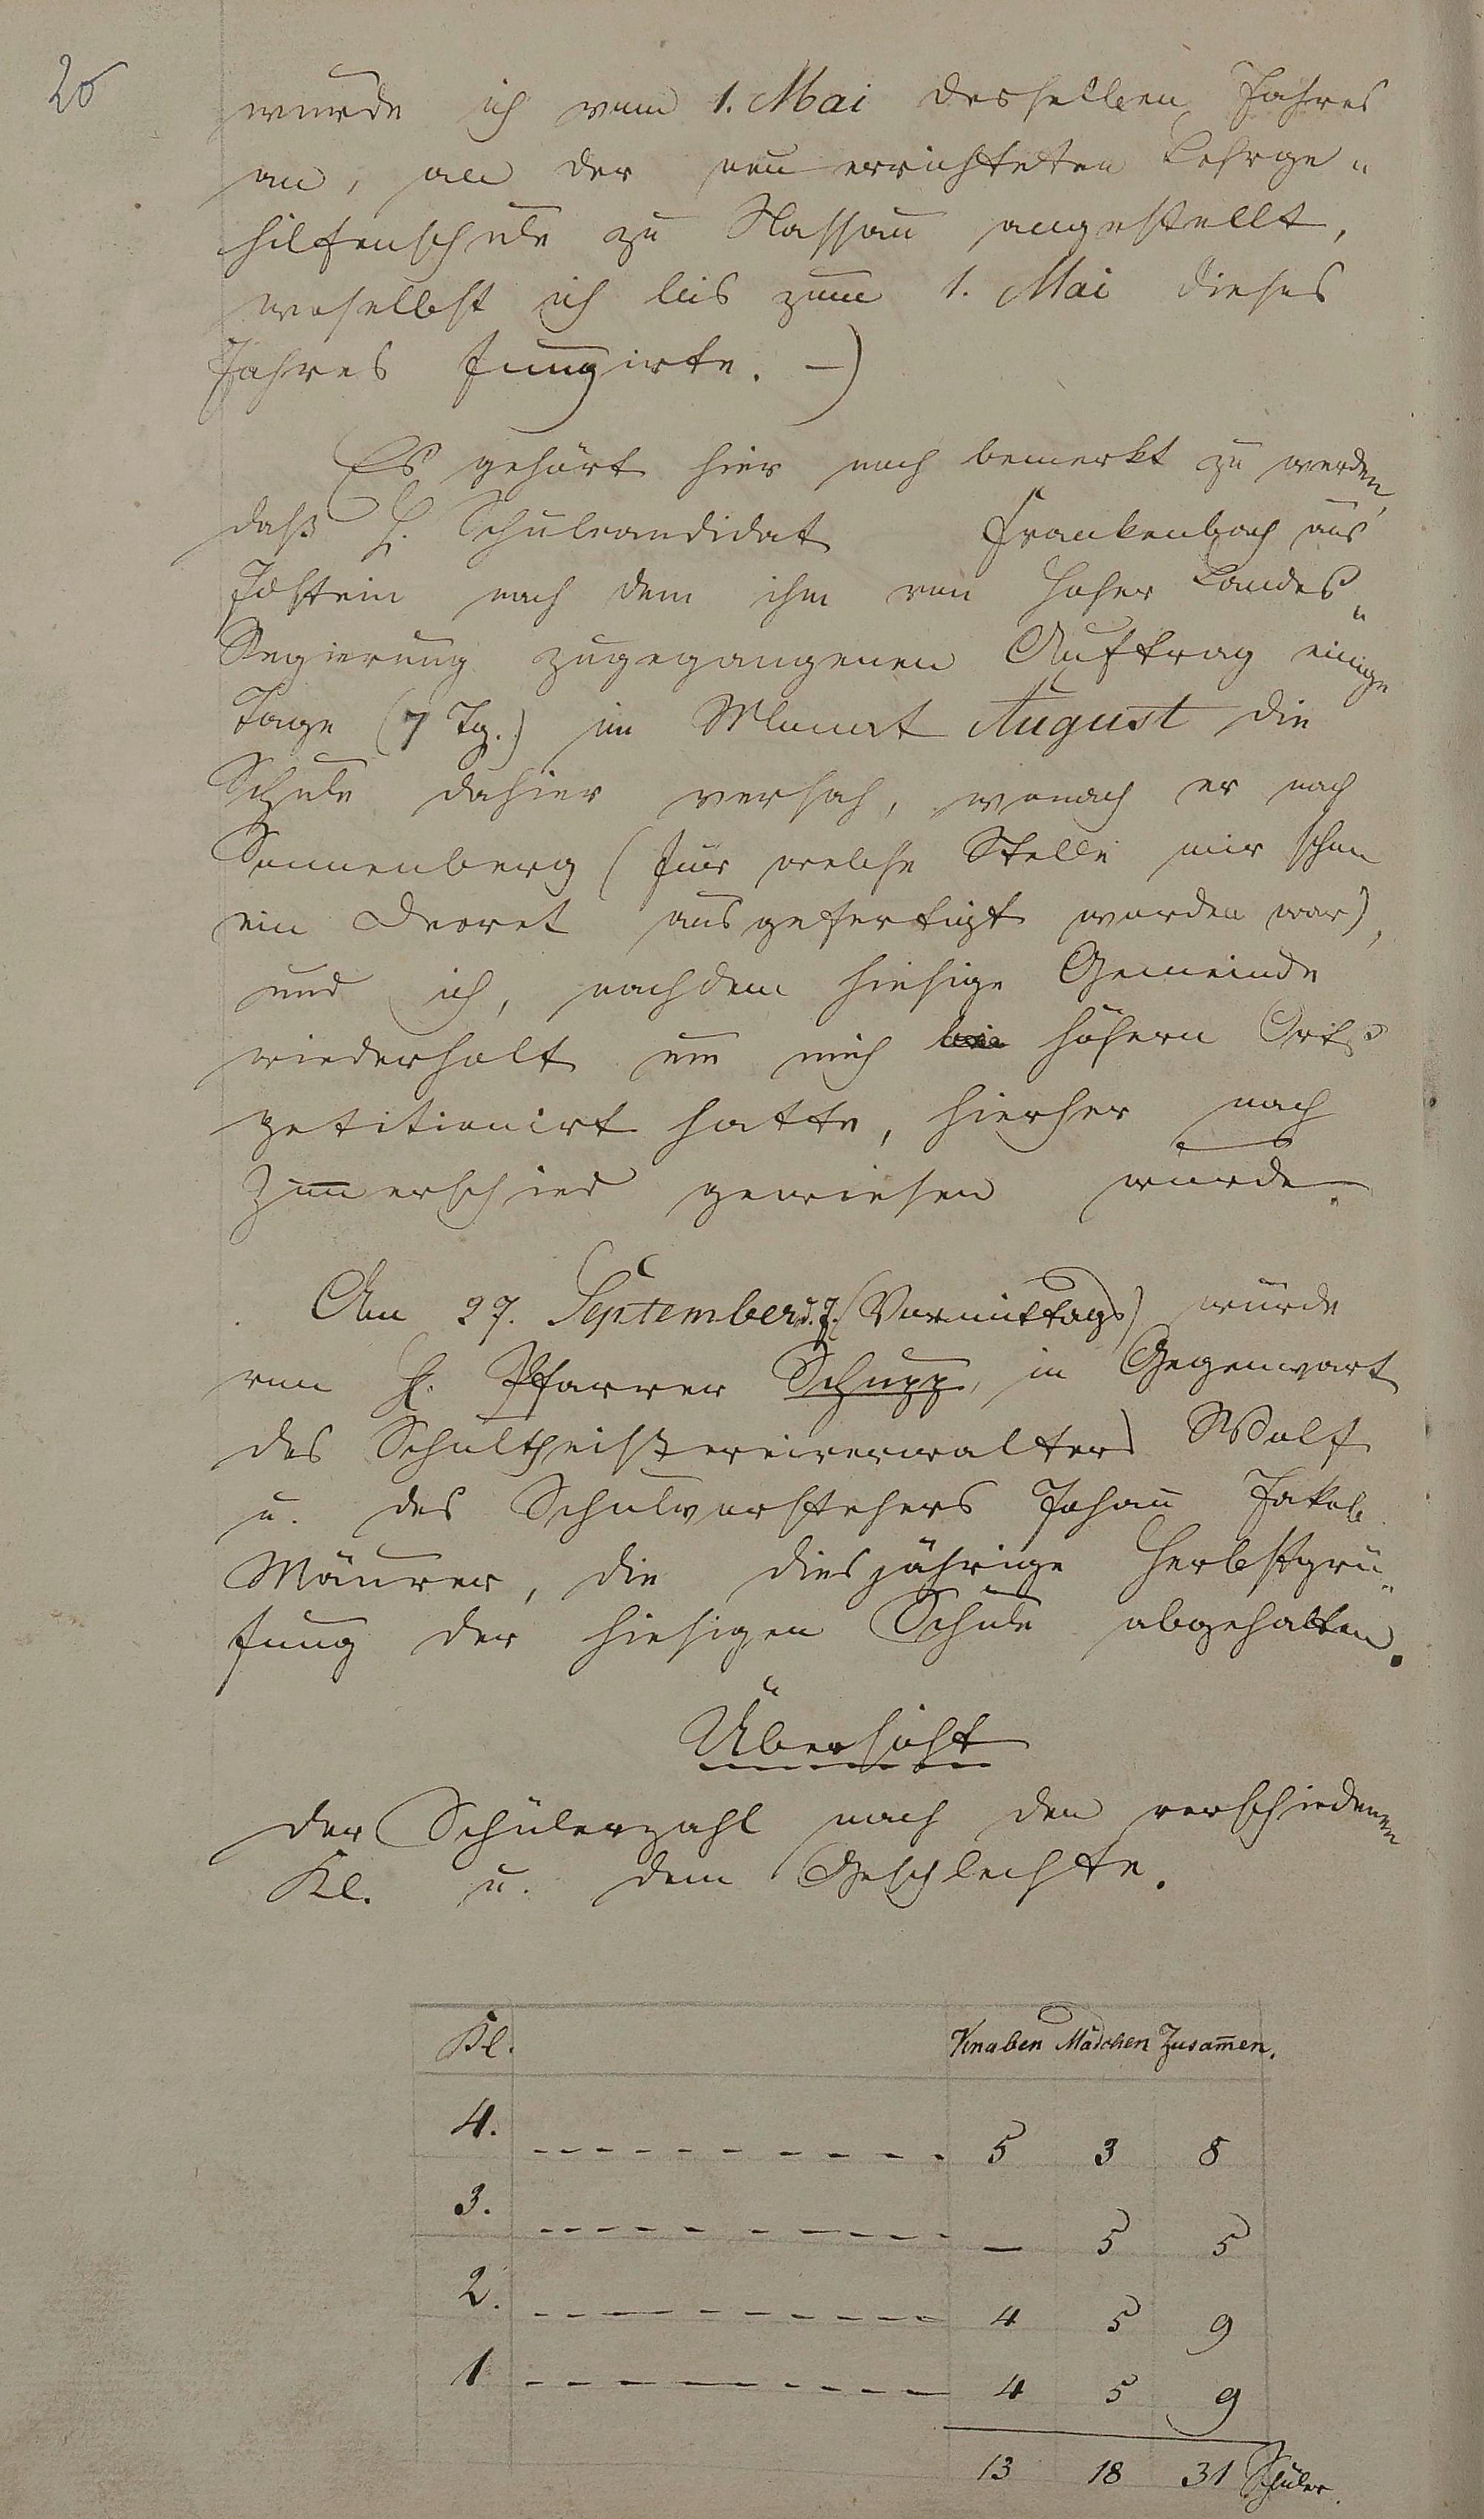 26
wurde ich vom 1. Mai desselben Jahres
an, an der neu errichteten Lehrge„
hilfenschule zu Nassau angestellt,
woselbst ich bis zum 1. Mai dieses
Jahres fungirte. —)
Es gehört hier noch bemerkt zu werden,
daß H. Schulcandidat Frankenbach aus
Idstein nach dem ihm von hoher Landes„
Regierung zugegangenen Auftrag einige
Tage (7 Tg.) im Monat August die
Schule dahier versah, wonach er nach
Sonnenberg (für welche Stelle mir schon
ein Decret ausgefertigt worden war),
und ich, nachdem hiesige Gemeinde
wiederholt um mich bei höhern Orts
petitionirt hatte, hierher nach
Zim̅erschied gewiesen wurde.
Am 27. September d. J. (Vormittags) wurde
von H. Pfarrer Schupp, in Gegenwart
des Schultheißereiverwalters Wolf
u. des Schulvorstehers Johan̅ Jakob
Mäurer, die diesjährige Herbstprü„
fung der hiesigen Schule abgehalten.
Übersicht
der Schülerzahl nach den verschiedenen
Kl. u. dem Geschlechte.
Kl. Knaben Mädchen Zusam̅en.
4. 5 3 8
3. — 5 5
2. 4 5 9
1 4 5 9
13 18 31 Schüler.